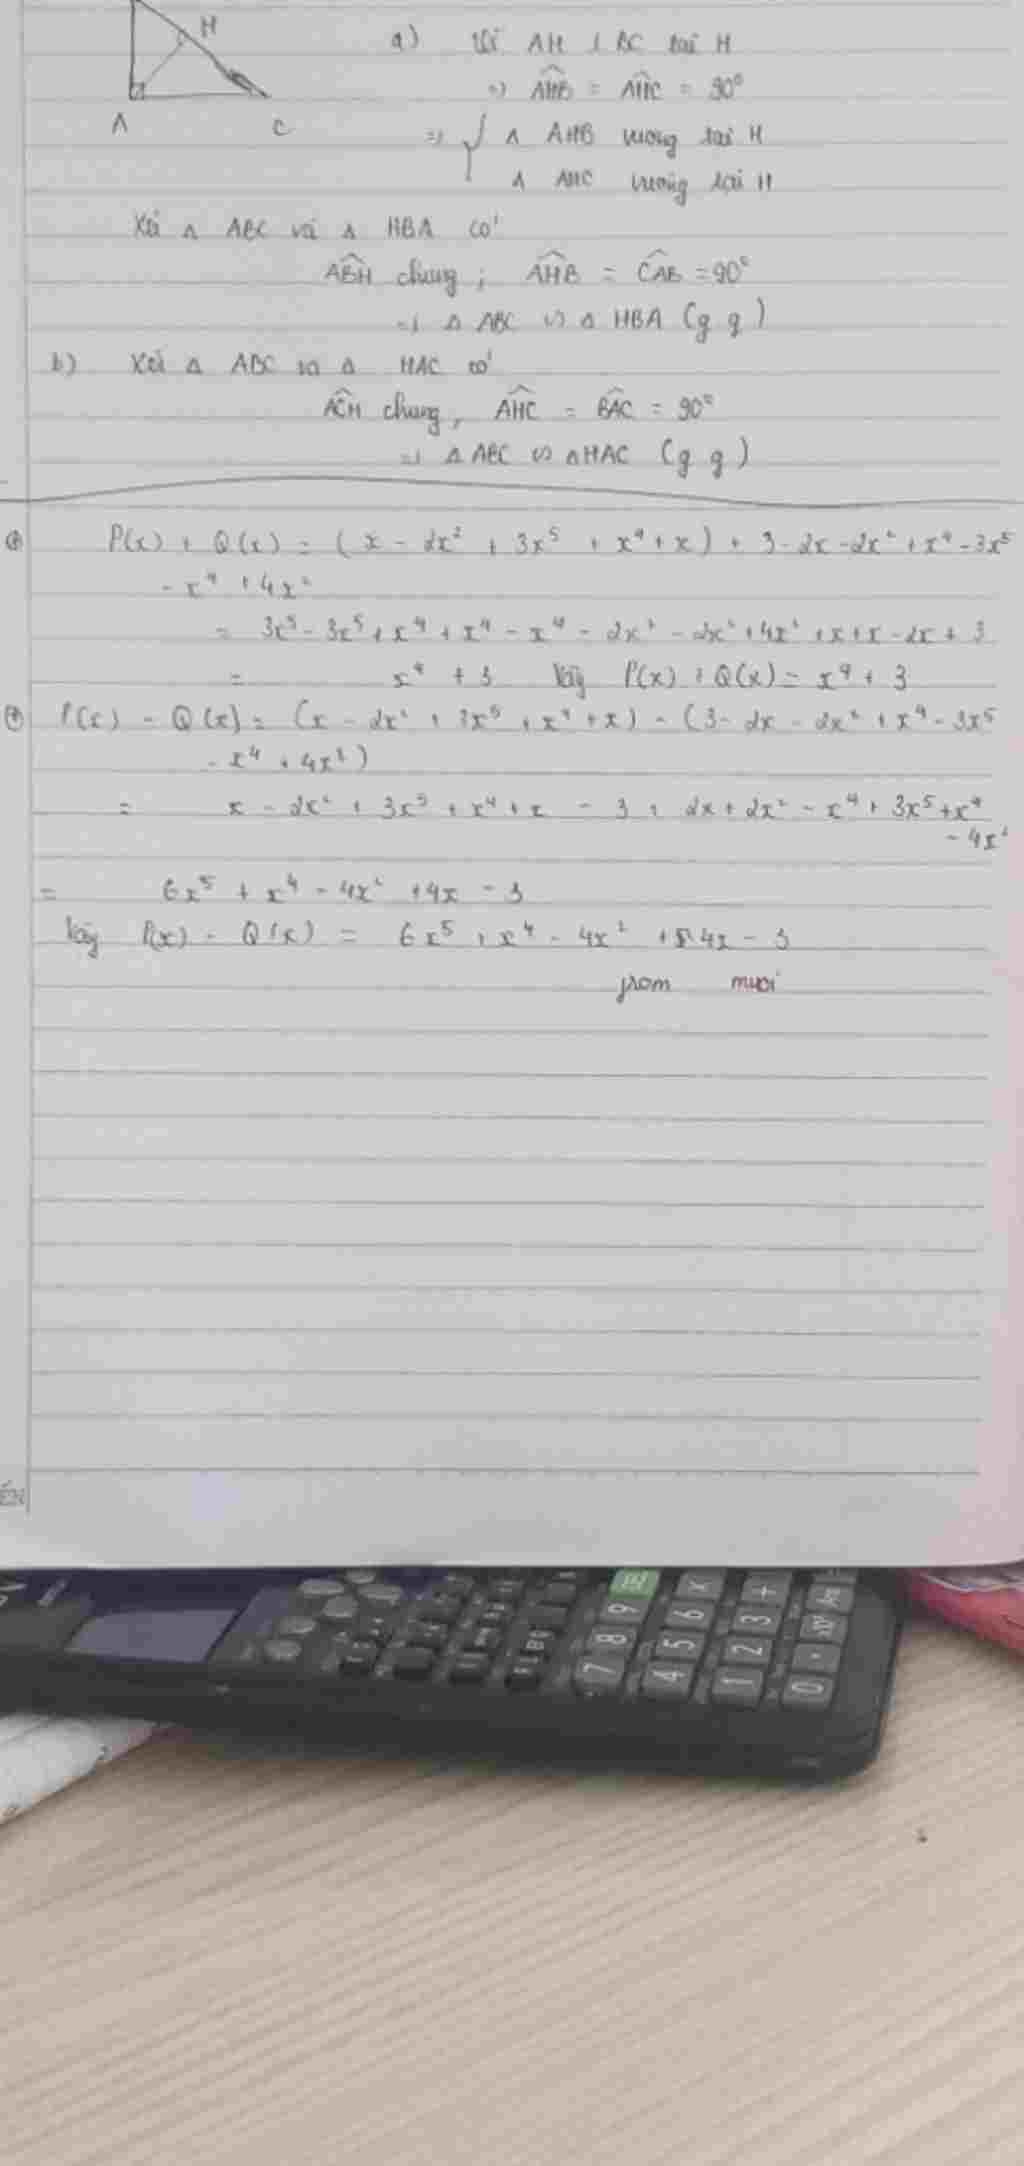 H
A C
a) Vì AH ⊥ BC tại H
=> AHB = AHC = 90°
=> { Δ AHB vuông tại H
Δ AHC vuông tại H
Xét Δ ABC và Δ HBA có
ABH chung ; AHB = CAB = 90°
=> Δ ABC ∽ Δ HBA (g g)
b) Xét Δ ABC và Δ HAC có
ACH chung, AHC = BAC = 90°
=> Δ ABC ∽ Δ HAC (g g)
P(x) + Q(x) = (x - 2x² + 3x⁵ + x⁴ + x) + 3 - 2x - 2x² + x⁴ - 3x⁵
- x⁴ + 4x²
= 3x⁵ - 3x⁵ + x⁴ + x⁴ - x⁴ - 2x² - 2x² + 4x² + x + x - 2x + 3
= x⁴ + 3 Vậy P(x) + Q(x) = x⁴ + 3
P(x) - Q(x) = (x - 2x² + 3x⁵ + x⁴ + x) - (3 - 2x - 2x² + x⁴ - 3x⁵
- x⁴ + 4x²)
= x - 2x² + 3x⁵ + x⁴ + x - 3 + 2x + 2x² - x⁴ + 3x⁵ + x⁴
- 4x²
= 6x⁵ + x⁴ - 4x² + 4x - 3
Vậy P(x) - Q(x) = 6x⁵ + x⁴ - 4x² + 4x - 3
from muoi
7 8 9
4 5 6 x
1 2 3 +
0 .